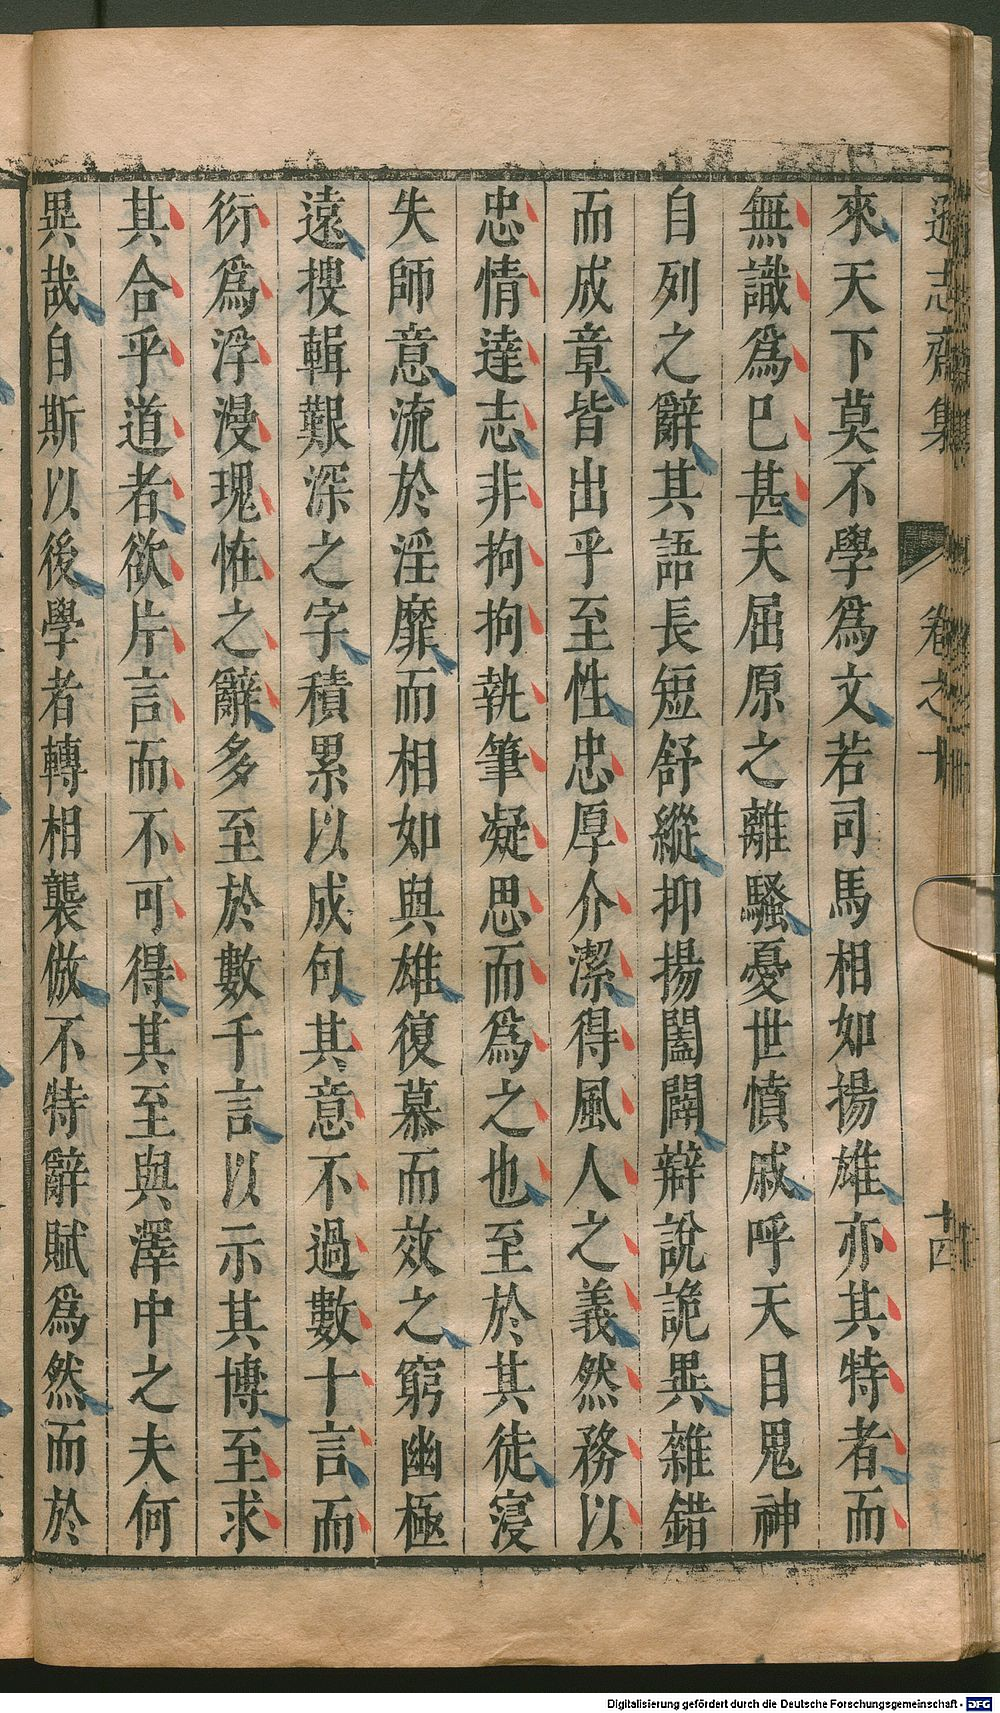 遜志齋集　卷之十　十四
來天下莫不學爲文若司馬相如揚雄亦其特者而
無識爲巳甚夫屈原之離騷憂世憤戚呼天目鬼神
自列之辭其語長短舒縱抑揚闔闢辯說詭異雜錯
而成章皆出乎至性忠厚介潔得風人之義然務以
忠情達志非拘拘執筆凝思而爲之也至於其徒寖
失師意流於淫靡而相如與雄復慕而效之窮幽極
遠搜輯艱深之字積累以成句其意不過數十言而
衍爲浮漫瑰恠之辭多至於數千言以示其博至求
其合乎道者欲片言而不可得其至與澤中之夫何
異哉自斯以後學者轉相襲倣不特辭賦爲然而於
Digitalisierung gefördert durch die Deutsche Forschungsgemeinschaft - DFG